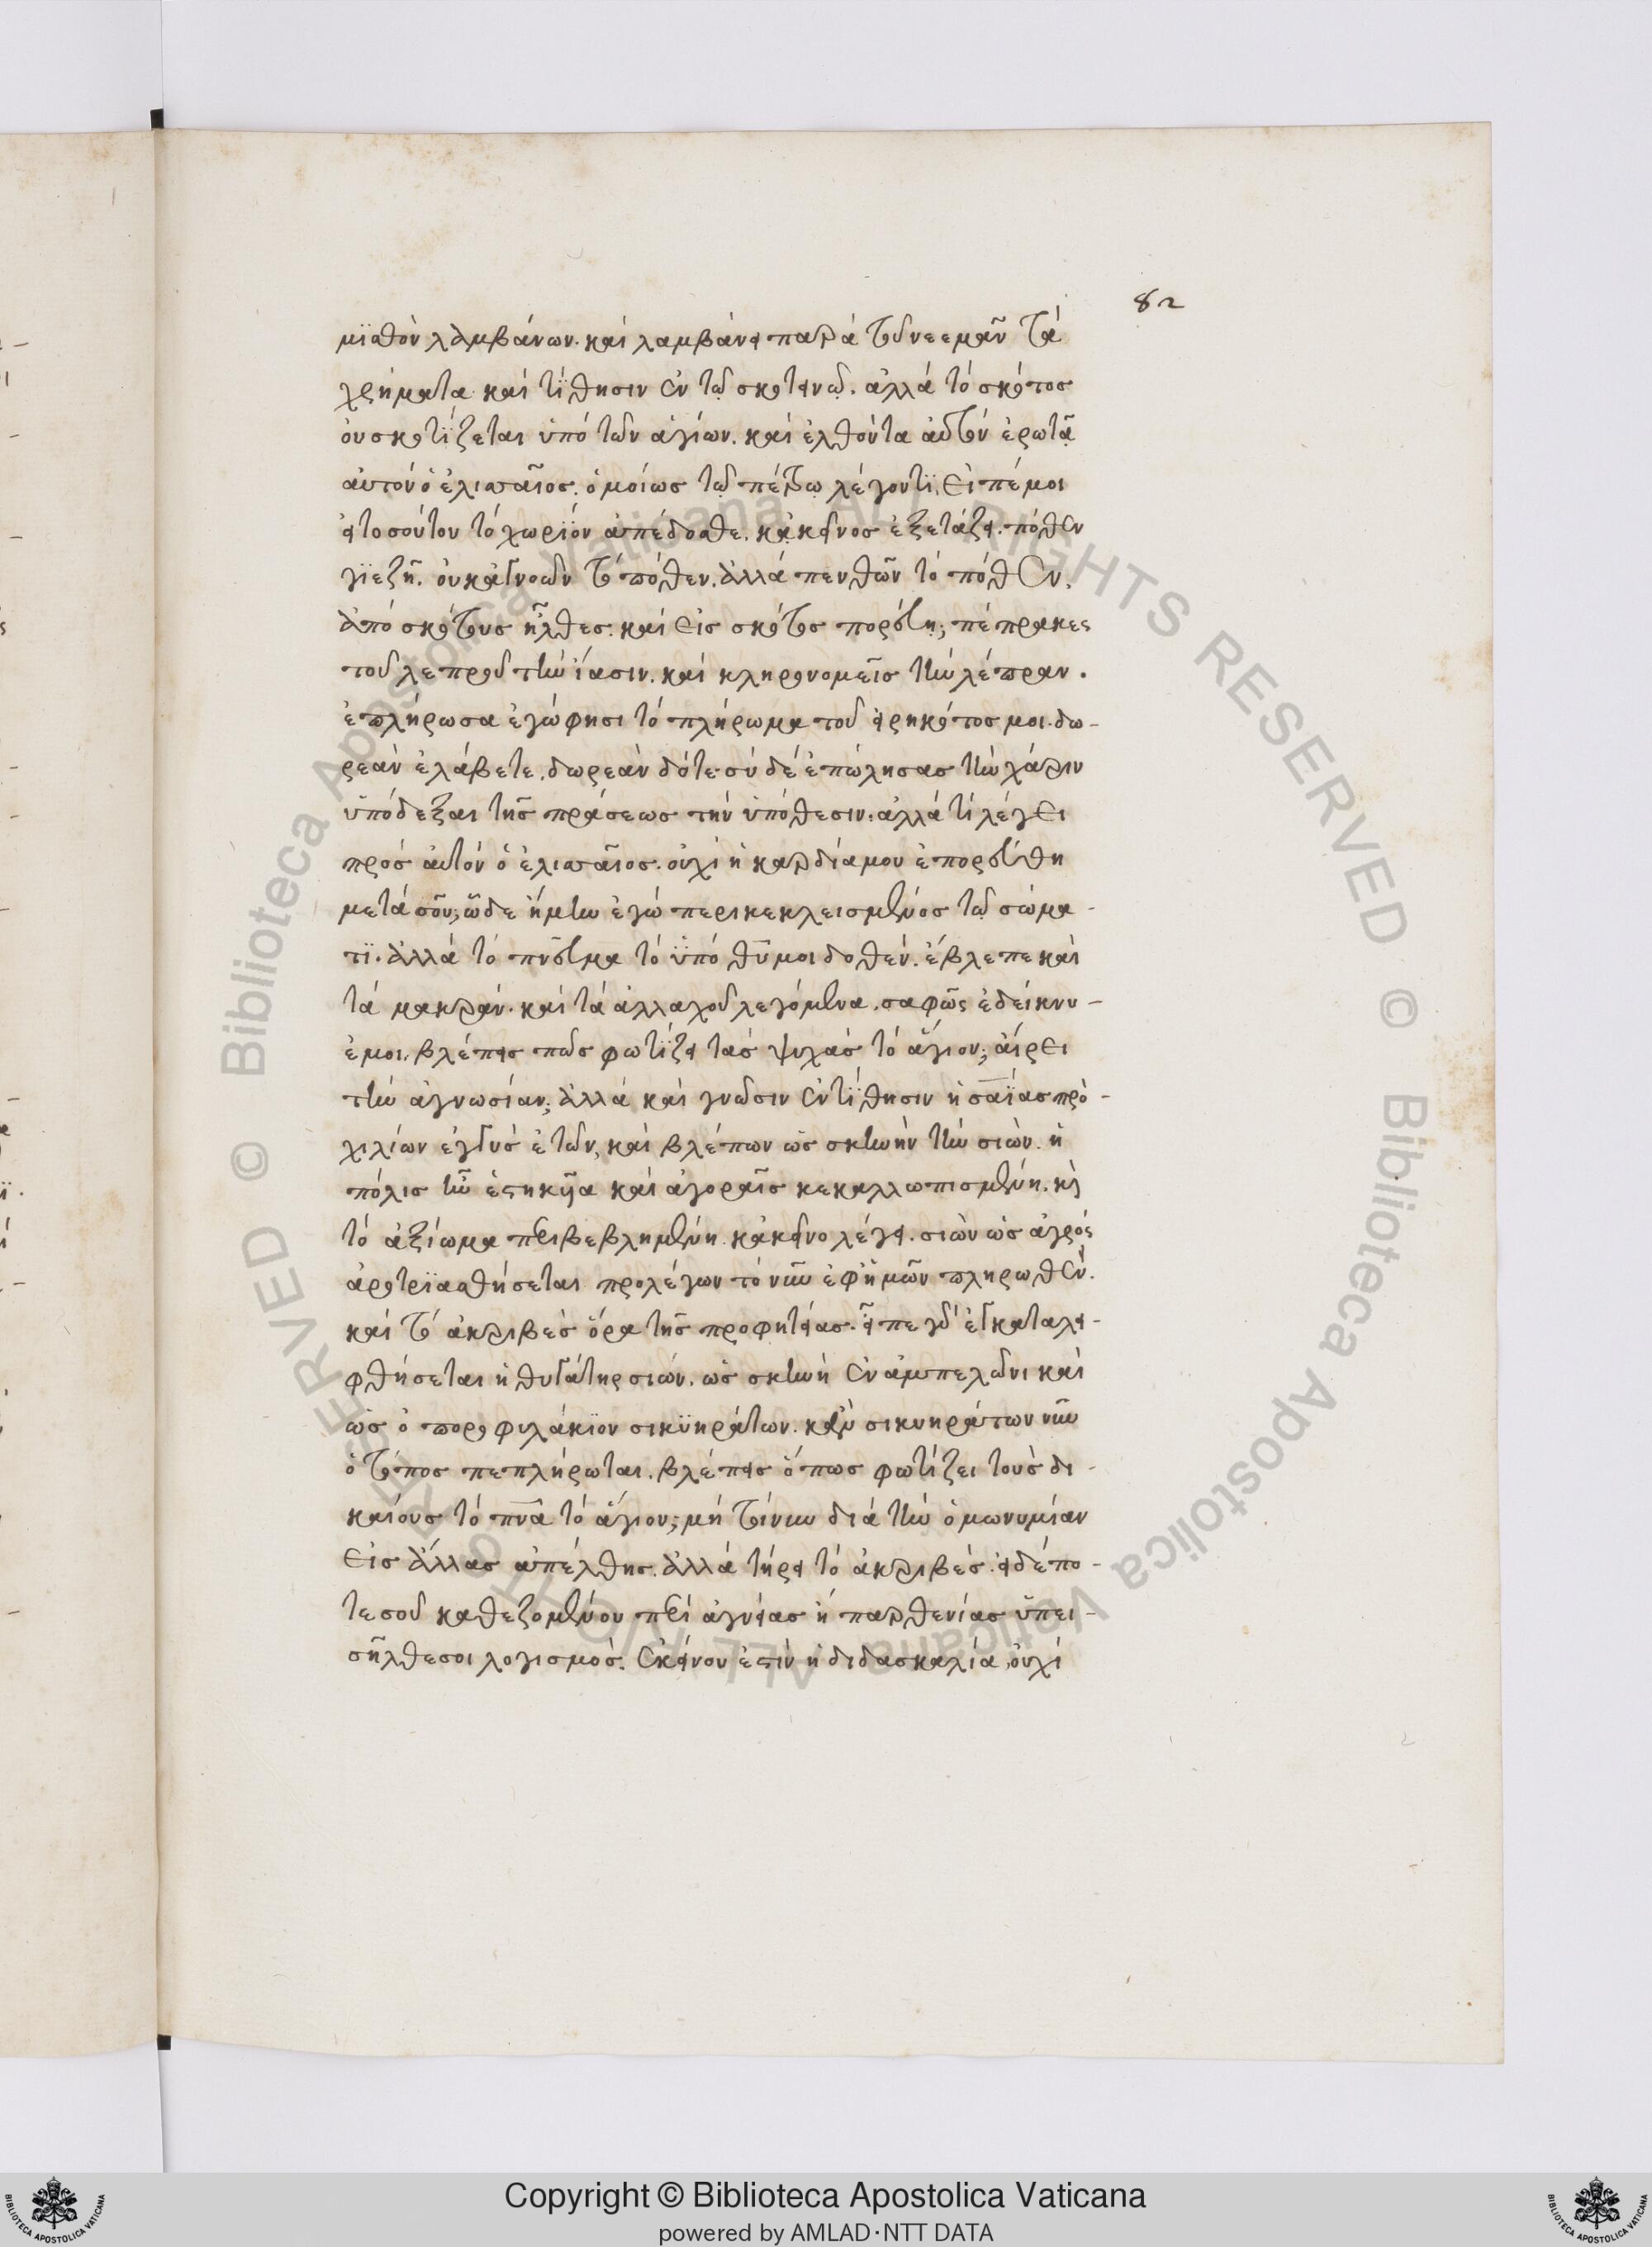 82
μϊσθὸν λαμβάνων. καὶ λαμβάνει παρὰ τοῦ νεεμὰν τὰ
χρήματα καὶ τίθησιν ἐν τῷ σκοτεινῷ. ἀλλὰ τὸ σκότος
οὐ σκοτΐζεται ὑπὸ τῶν ἁγίων. καὶ ἐλθόντα αὐτὸν ἐρωτᾷ
αὐτὸν ὁ ἐλισσαῖος. ὁμοίως τῷ πέτρῳ λέγοντϊ. εἰπέ μοι
εἰ τοσούτου τὸ χωρίον ἀπέδοσθε. κἀκεῖνος ἐξετάζει. πόθεν
γϊεζῆ. οὐκ ἀγνοῶν τὸ πόθεν. ἀλλὰ πενθῶν τὸ πόθεν.
ἀπὸ σκότους ἦλθες. καὶ εἰς σκότος πορεύῃ; πέπρακες
τοῦ λεπροῦ τὴν ἴασιν. καὶ κληρονομεῖς τὴν λέπραν.
ἐπλήρωσα ἐγώ φησι τὸ πλήρωμα τοῦ εἰρηκότος μοι. δω-
ρεὰν ἐλάβετε. δωρεὰν δότε. σὺ δὲ ἐπώλησας τὴν χάριν
ὑπόδεξαι τῆς πράσεως τὴν ὑπόθεσιν. ἀλλὰ τί λέγει
πρὸς αὐτὸν ὁ ἐλισσαῖος. οὐχὶ ἡ καρδία μου ἐπορεύθη
μετὰ σοῦ; ὧδε ἤμην ἐγὼ περικεκλεισμένος τῷ σώμα-
τϊ. ἀλλὰ τὸ πνεῦμα τὸ ὑπὸ θῦ μοι δοθέν. ἔβλεπε καὶ
τὰ μακράν. καὶ τὰ ἀλλαχοῦ λεγόμενα. σαφῶς ἐδείκνυ-
ἐμοι. βλέπεις πῶς φωτΐζει τὰς ψυχὰς τὸ ἅγιον; αἴρει
τὴν ἀγνωσίαν; ἀλλὰ καὶ γνῶσιν ἐντΐθησιν ἡσαΐας πρὸ-
χιλίων ἐγγὺς ἐτῶν, καὶ βλέπων ὡς σκηνὴν τὴν σιών. ἡ
πόλις ἦν ἑστηκυῖα καὶ ἀγοραῖς κεκαλλωπισμένη. κὶ
τὸ ἀξίωμα περιβεβλημένη. κἀκεῖνο λέγει. σιὼν ὡς ἀγρὸς
ἀροτρϊασθήσεται προλέγων τὸ νῦν ἐφ ἡμῶν πληρωθέν.
καὶ τὸ ἀκριβὲς ὅρα τῆς προφητείας. εἶπε γὰρ ἐγκαταλει-
φθήσεται ἡ θυγάτηρ σιών. ὡς σκηνὴ ἐν ἀμπελῶνι καὶ
ὡς ὀπωροφυλάκϊον σικϋηράτων. καὶ σικυηράτων νῦν
ὁ τόπος πεπλήρωται. βλέπεις ὅπως φωτίζει τοὺς δι-
καίους τὸ πνᾶ τὸ ἅγιον; μὴ τοίνυν διὰ τὴν ὁμωνυμίαν
εἰς ἄλλας ἀπέλθης. ἀλλὰ τήρει τὸ ἀκριβές. εἰ δέ πο-
τε σοῦ καθεζομένου περὶ ἁγνείας ἢ παρθενίας ὑπει-
σῆλθε σοι λογισμός. ἐκείνου ἐστὶν ἡ διδασκαλία. οὐχὶ
Copyright © Biblioteca Apostolica Vaticana
powered by AMLAD·NTT DATA
© Biblioteca Apostolica Vaticana ALL RIGHTS RESERVED © Biblioteca Apostolica Vaticana ALL RIGHTS RESERVED